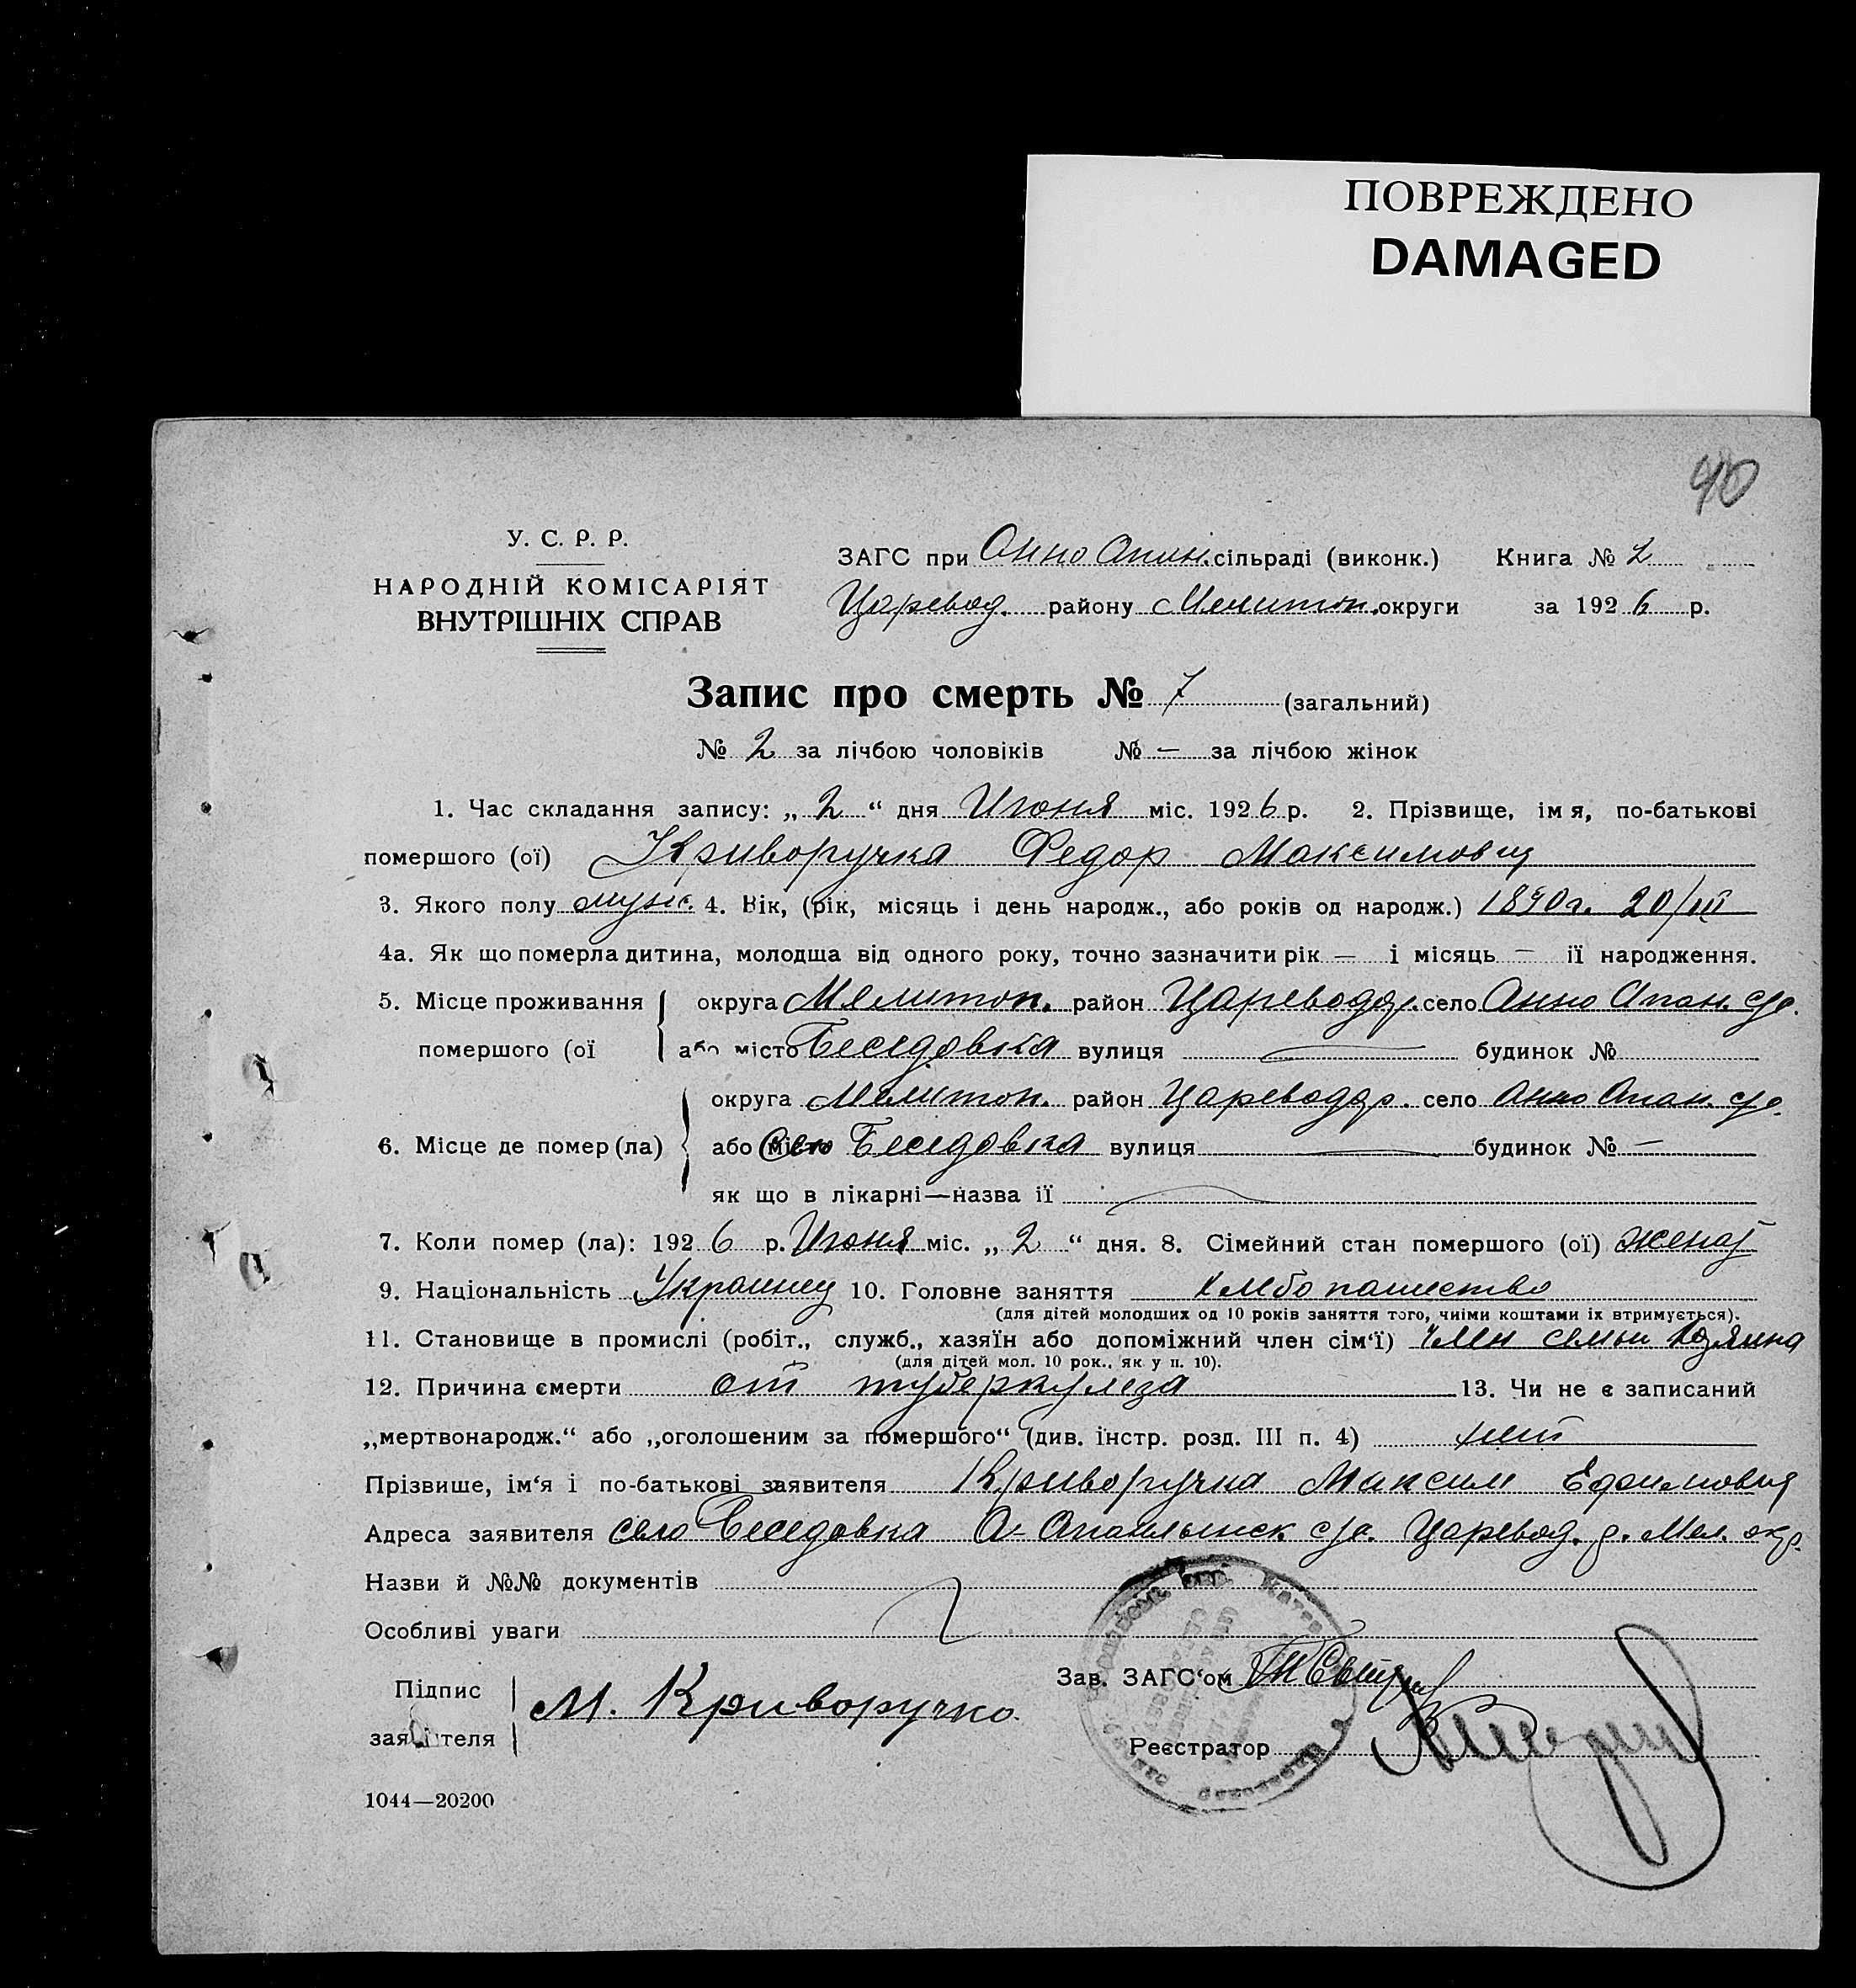 ПОВРЕЖДЕНО
DAMAGED
40
У. С. Р. Р.
НАРОДНІЙ КОМІСАРІЯТ
ВНУТРІШНІХ СПРАВ
ЗАГС при Анно Опан. сільраді (виконк.) Книга № 2
Царевод. району Мелитоп. округи за 1926 р.
Запис про смерть № 7 (загальний)
№ 2 за лічбою чоловіків № — за лічбою жінок
1. Час складання запису: „2“ дня Июня міс. 1926 р. 2. Прізвище, імя, по-батькові
помершого (ої) Криворучка Федор Максимович
3. Якого полу муж. 4. Вік, (рік, місяць і день народж., або років од народж.) 1890г. 20/III
4а. Як що померла дитина, молодша від одного року, точно зазначити рік — і місяць — її народження.
5. Місце проживання округа Мелитоп. район Цареводар. село Анно Опан. с/с.
помершого (ої або місто Беседовка вулиця — будинок №
округа Мелитоп. район Цареводар. село Анно Опан. с/с.
6. Місце де помер (ла) або село Беседовка вулиця — будинок № —
як що в лікарні—назва її —
7. Коли помер (ла): 1926 р. Июня міс. „2“ дня. 8. Сімейний стан помершого (ої) женат
9. Національність Украинец 10. Головне заняття хлебопашество
(для дітей молодших од 10 років заняття того, чиїми коштами їх втримується).
11. Становище в промислі (робіт., служб., хазяїн або допоміжний член сім‘ї) член семьи хозяина
(для дітей мол. 10 рок., як у п. 10).
12. Причина смерти от туберкулеза 13. Чи не є записаний
„мертвонародж.“ або „оголошеним за помершого“ (див. інстр. розд. III п. 4) нет
Прізвише, ім‘я і по-батькові заявителя Криворучка Максим Ефимович
Адреса заявителя село Беседовка А- с/с. Царевод. р. Мел. окр.
Назви й №№ документів
Особливі уваги
Підпис
заявителя
М. Криворучко
Зав. ЗАГС‘ом
Реєстратор
1044—20200